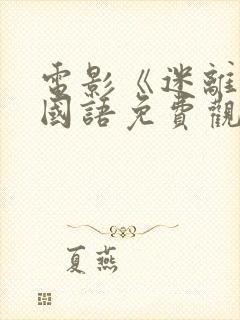 電影《迷離
國語免費觀
夏燕